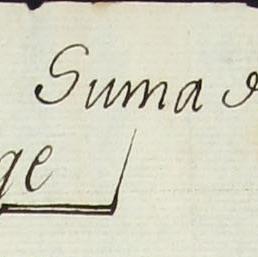 Suma d
ge